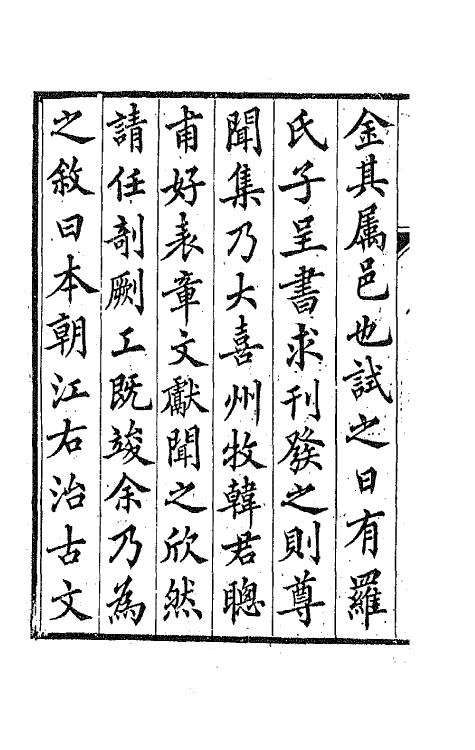 金其属邑也試之日有羅
氏子呈書求刊發之則尊
聞集乃大喜州牧韓君聰
甫好表章文獻聞之欣然
請任剞劂工既竣余乃為
之敘曰本朝江右治古文